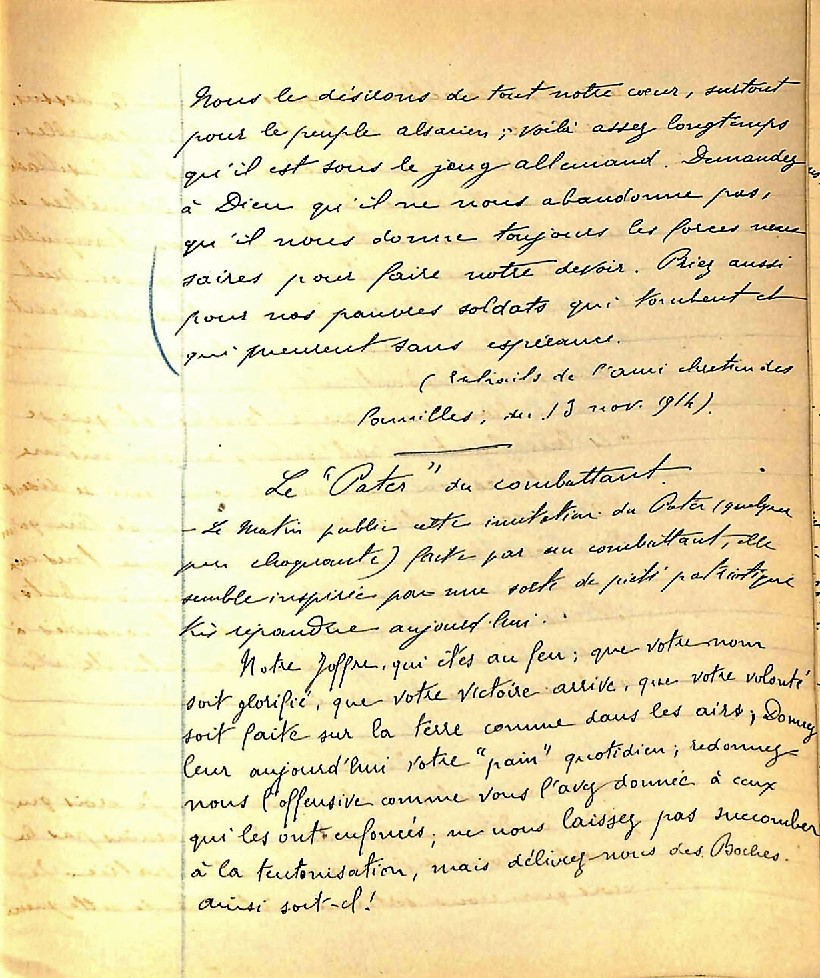 Nous le désirons de tout notre cœur, surtout
pour le peuple alsacien ; voilà assez longtemps
qu'il est sous le joug allemand. Demandez
à Dieu qu'il ne nous abandonne pas,
qu'il nous donne toujours les forces néces
saires pour faire notre devoir. Priez aussi
pour nos pauvres soldats qui tombent et
qui meurent sans espérance.
(Extraits de l'ami chrétien des
familles ; du 13 nov. 1914).
Le "Pater" du combattant.
- Le Matin publie cette imitation du Pater (quelque
peu choquante) faite par un combattant, elle
semble inspirée par une sorte de piété patriotique
très répandue aujourd'hui.
Notre Joffre, qui êtes au feu ; que votre nom
soit glorifié, que votre victoire arrive, que votre volonté
soit faite sur la terre comme dans les airs ; Donnez
leur aujourd'hui votre "pain" quotidien ; redonnez=
nous l'offensive comme vous l'avez donnée à ceux
qui les ont enfoncés ; ne nous laissez pas succomber
à la teutonisation, mais délivrez-nous des Boches.
ainsi soit-il !